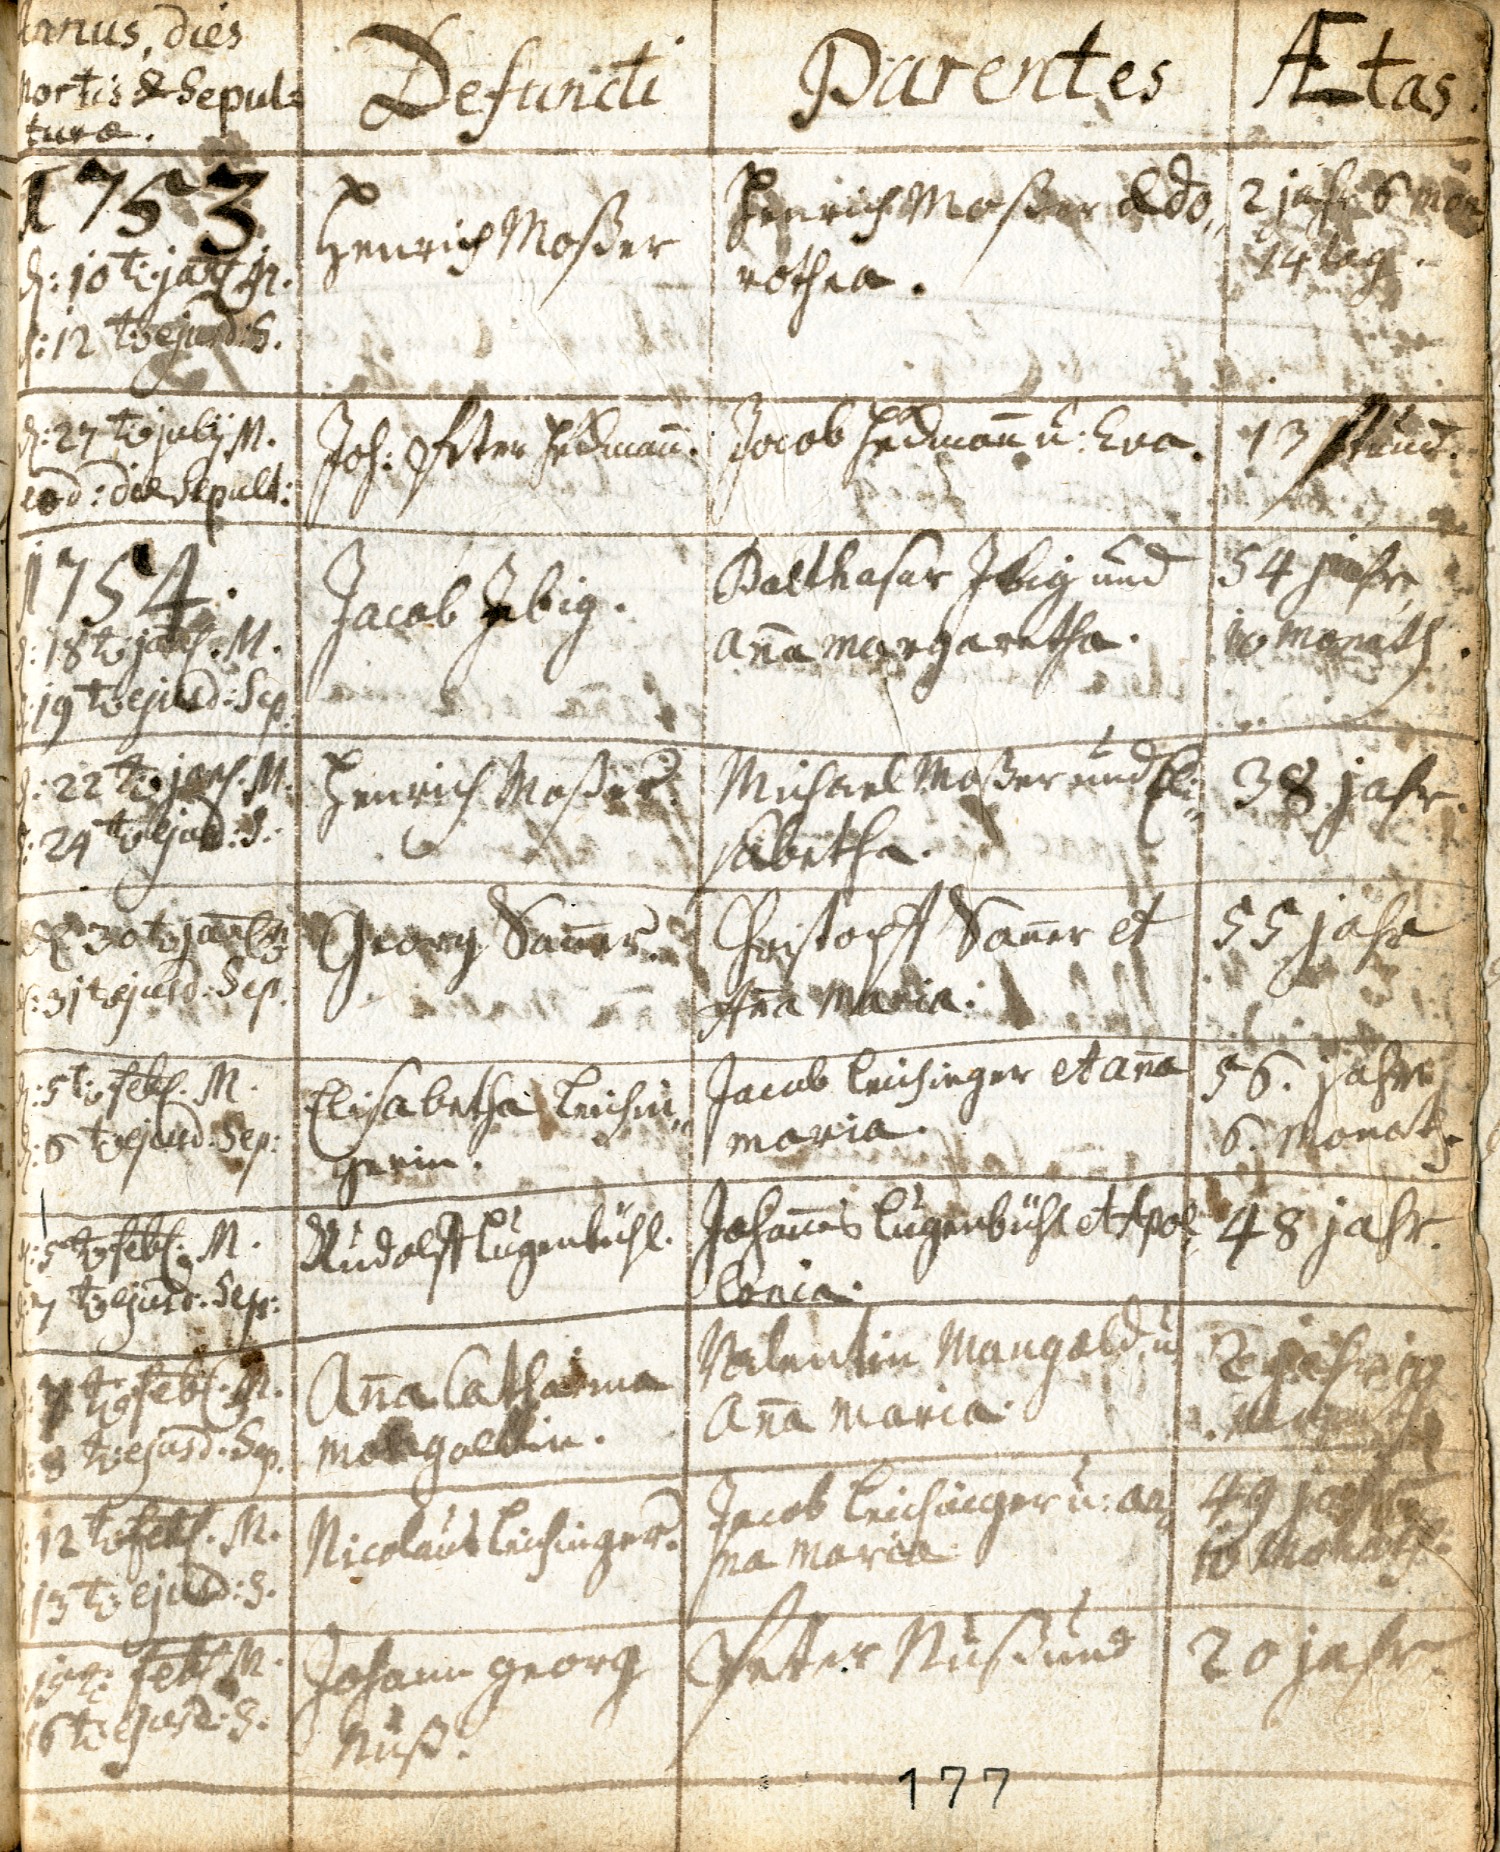 Annus, dies
mortis & Sepul=
turæ.
Defuncti
Parentes
Ætas.
1753
d: 10t. jan͠ M.
d: 12 t. ejusd: S.
Henrich Moßer
Henrich Moßer & do„
rothea.
2 jahr 6 mon
14 tag.
d: 27 t. julij M.
eod: die Sepult:
Joh: Peter Hedmann̄.
Jacob Hedmann̄ u: Eva.
13 stund.
1754.
d: 18 t. jan. M.
d: 19 t. ejusd: Sep.
Jacob Jbig.
Balthasar Jbig und
an̄a margaretha.
54 jahr,
10 Monath.
d: 22 t. jan. M.
d: 24 t. ejusd: S.
Henrich Moßer.
Michael Moßer und Eli„
sabetha.
38 jahr.
d 30 t. jan. M
d: 31 t. ejusd: Sep.
Georg San̄er.
Christoph San̄er et
An̄a Maria.
55 jahr
d: 5 t. feb. M.
d: 6 t. ejusd. Sep:
Elisabetha Leichin„
gerin.
Jacob Leichinger et an̄a
maria.
56. jahr
6. Monath.
d: 5 t. feb. M.
d: 7 t. ejusd. Sep:
Rudolff Lugenbühl.
Johan̄es Lugenbühl et Apol„
lonia.
48 jahr.
d: 7 t. feb. M.
d: 8 t. ejusd. Sep.
An̄a Catharina
mangoldin.
Valentin Mangold u
an̄a maria.
2 jahr
d: 12 t. feb. M.
13 t. ejusd: S.
Nicolaus Leichinger.
Jacob Leichinger u: an„
na maria
49 jahr
10 Monath.
15 t. feb M.
16 t. ejusd: S.
Johann georg
Nuß.
Peter Nuß und
20 jahr.
177